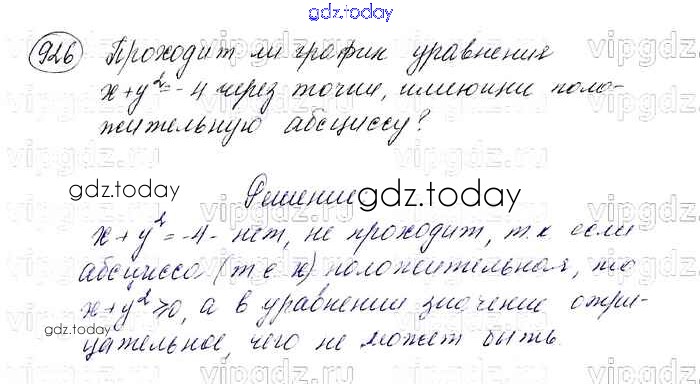 gdz.today
926 Проходит ли график уравнения
x+y²=-4 через точки, имеющие поло-
жительную абсциссу?
gdz.today
Решение
gdz.today
x+y²=-4- нет, не проходит, т.к. если
абсцисса (т.е х) положительная, то
x+y²≥0, а в уравнении значение отри-
gdz.today
цательное, чего не может быть.